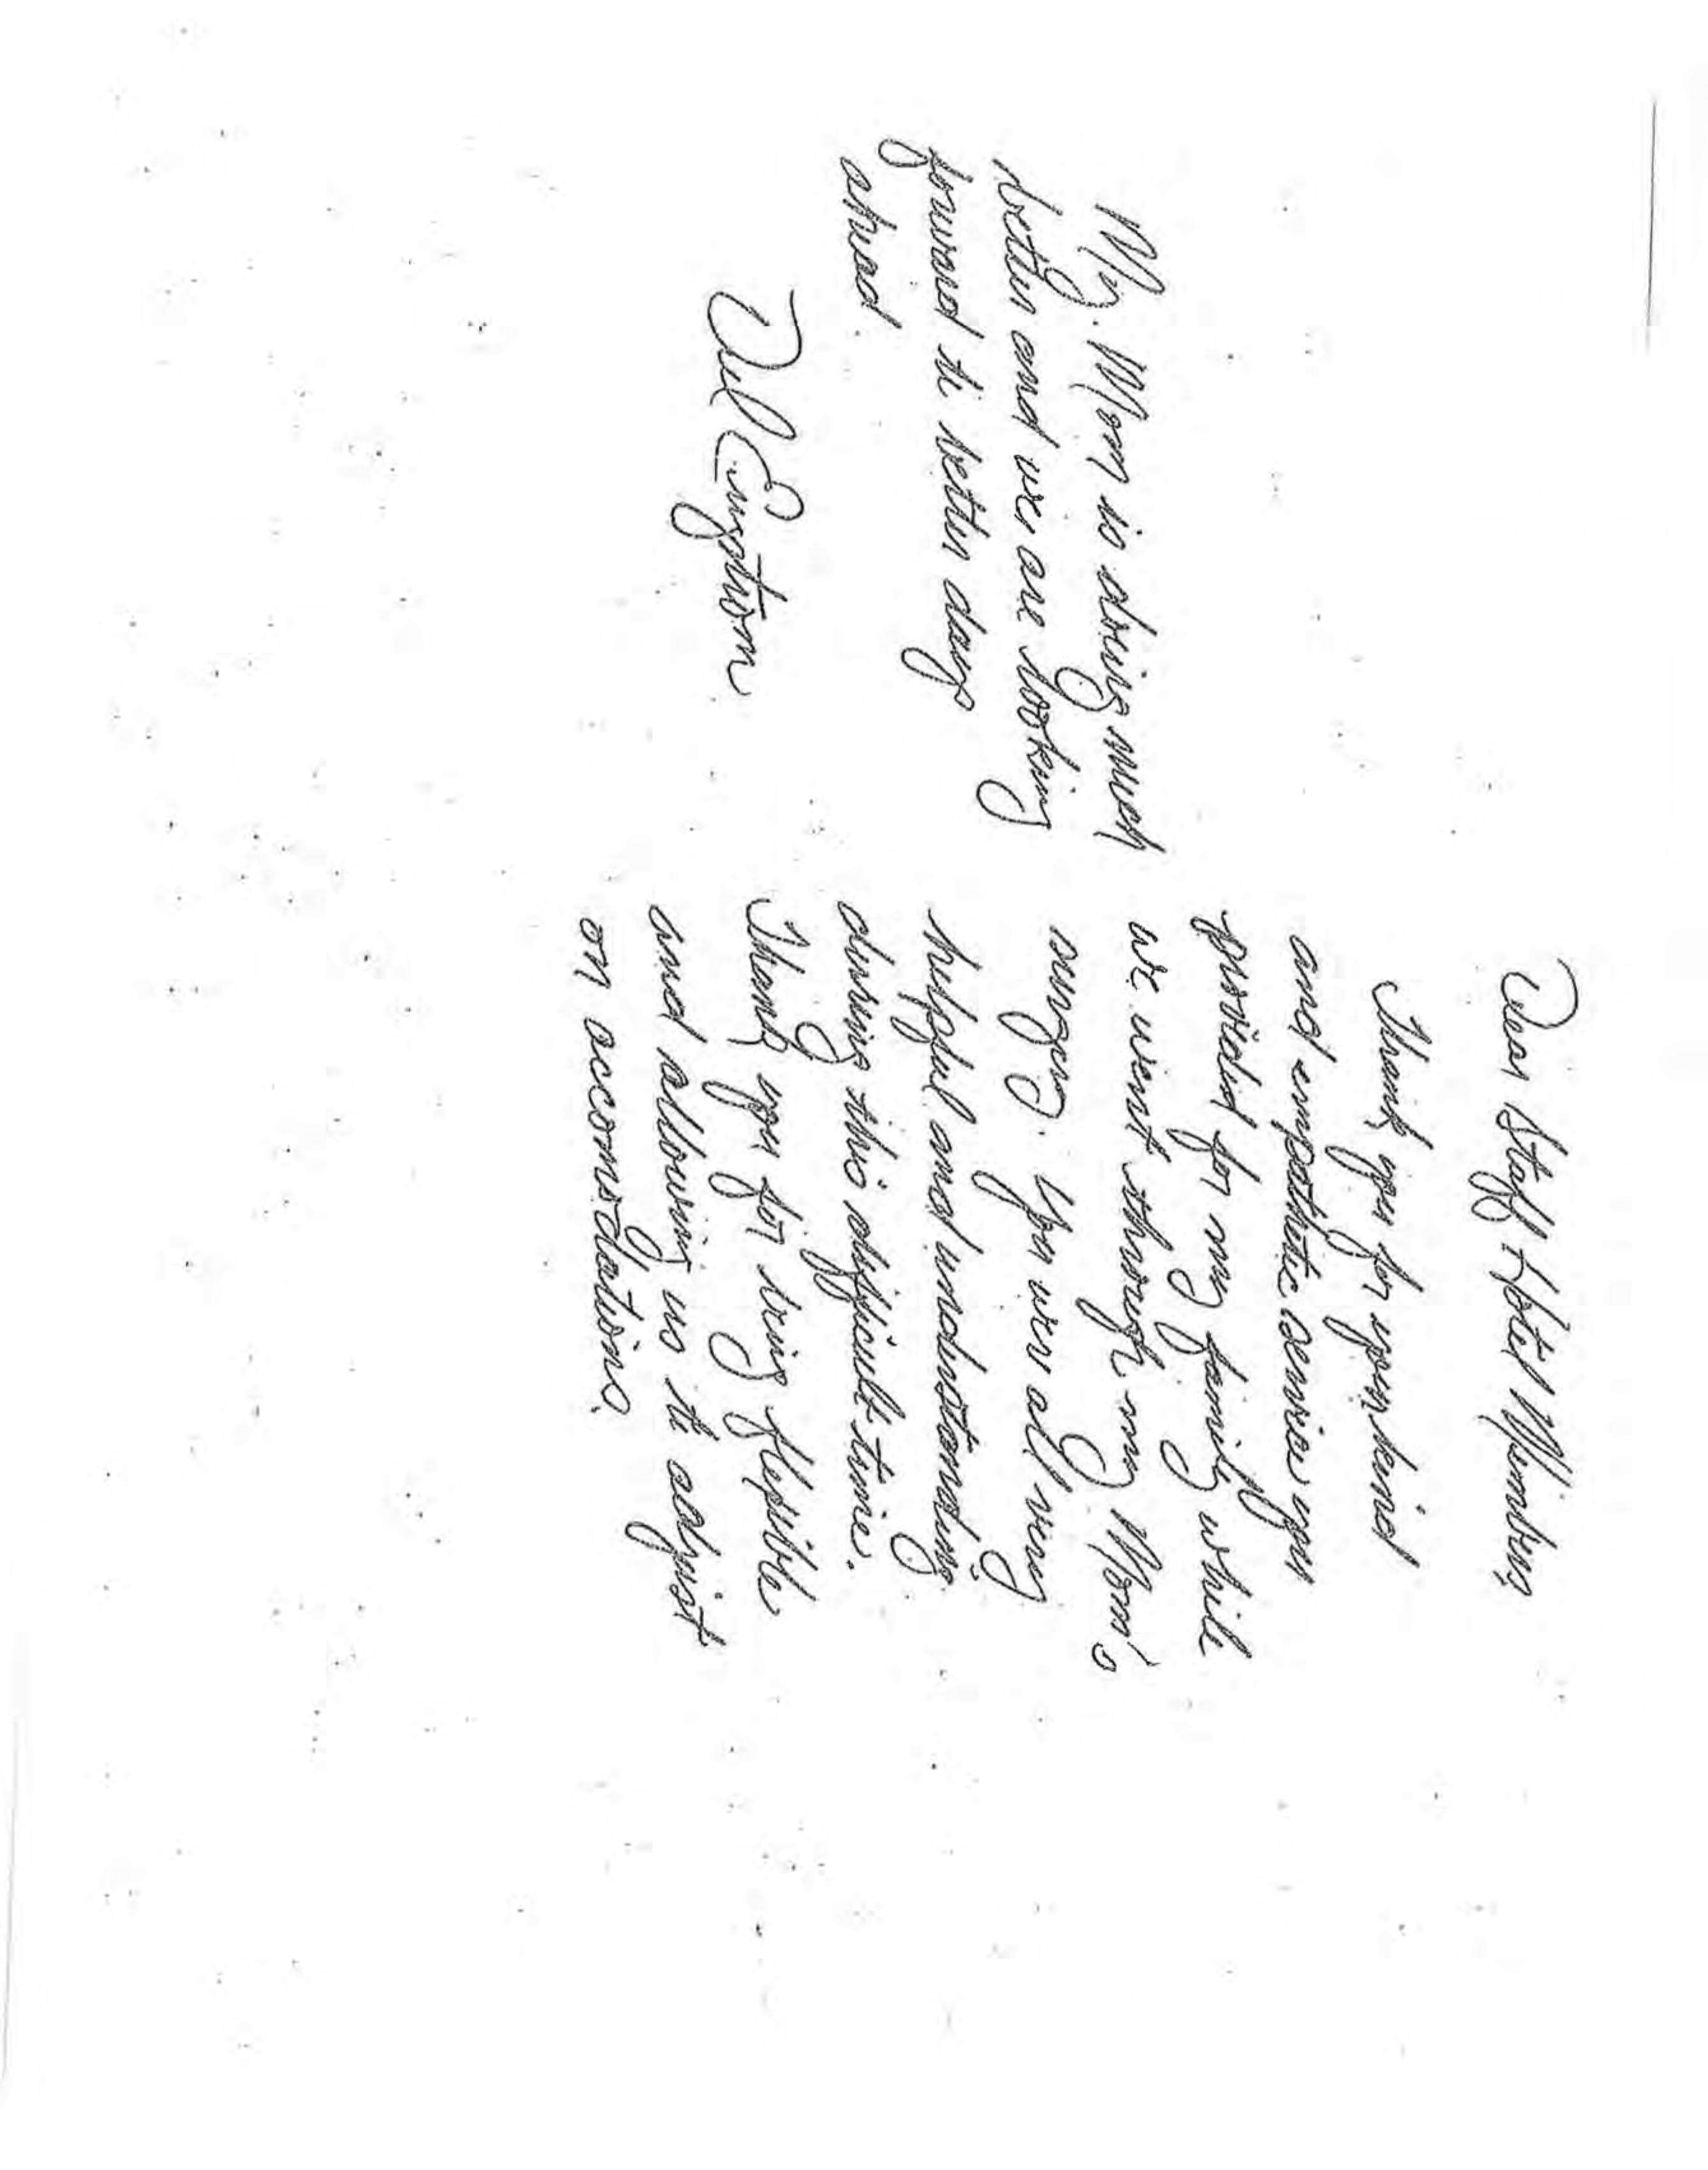 Dear Staff Hotel Members,
Thank you for your kind
and empathetic service you
provided for my family while
we went through my Mom's
surgery. You were all very
helpful and understanding
during this difficult time.
Thank you for being flexible
and allowing us to adjust
on accomodations.
My Mom is doing much
better and we are looking
forward to better days
ahead.
Engstrom